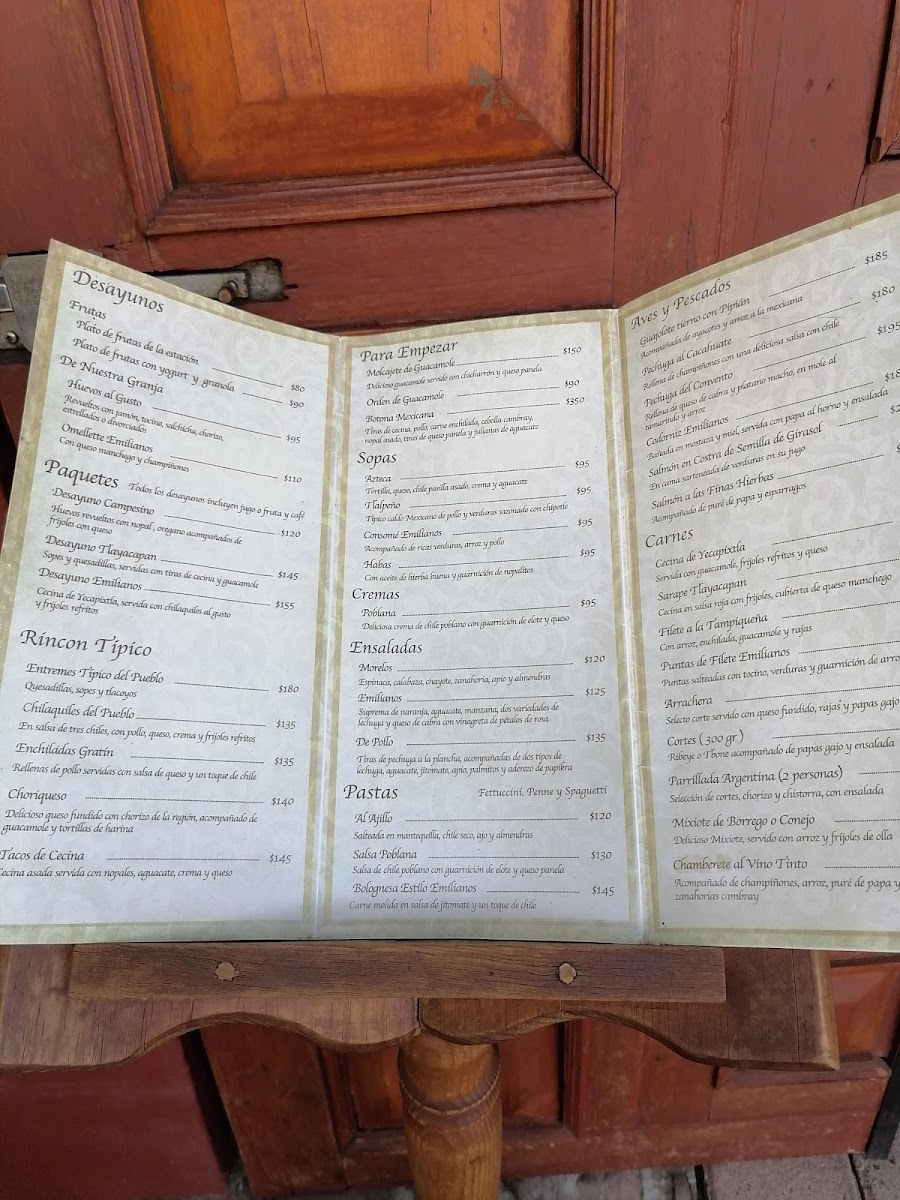 Desayunos
Frutas
Plato de frutas de la estación $80
Plato de frutas con yogurt y granola $90
De Nuestra Granja
Huevos al Gusto $95
Revueltos con jamón, tocino, salchicha, chorizo,
estrellados o divorciados
Omellette Emilianos $110
Con queso manchego y champiñones
Paquetes Todos los desayunos incluyen jugo o fruta y café
Desayuno Campesino $120
Huevos revueltos con nopal, orégano acompañados de
frijoles con queso
Desayuno Tlayacapan $145
Sopes y quesadillas, servidas con tiras de cecina y guacamole
Desayuno Emilianos $155
Cecina de Yecapixtla, servida con chilaquiles al gusto
y frijoles refritos
Rincon Típico
Entremes Típico del Pueblo $180
Quesadillas, sopes y tlacoyos
Chilaquiles del Pueblo $135
En salsa de tres chiles, con pollo, queso, crema y frijoles refritos
Enchiladas Gratin $135
Rellenas de pollo servidas con salsa de queso y un toque de chile
Choriqueso $140
Delicioso queso fundido con chorizo de la región, acompañado de
guacamole y tortillas de harina
Tacos de Cecina $145
Cecina asada servida con nopales, aguacate, crema y queso
Para Empezar
Molcajete de Guacamole $150
Delicioso guacamole servido con chicharrón y queso panela
Orden de Guacamole $90
Botona Mexicana $350
Tiras de cecina, pollo, carne enchilada, cebolla cambray,
nopal asado, tiras de queso panela y julianas de aguacate
Sopas
Azteca $95
Tortilla, queso, chile pasilla asado, crema y aguacate
Tlalpeño $95
Típico caldo Mexicano de pollo y verduras sazonado con chipotle
Consomé Emilianos $95
Acompañado de ricas verduras, arroz y pollo
Habas $95
Con aceite de hierba buena y guarnición de nopalitos
Cremas
Poblana $95
Deliciosa crema de chile poblano con guarnición de elote y queso
Ensaladas
Morelos $120
Espinaca, calabaza, chayote, zanahoria, apio y almendras
Emilianos $125
Suprema de naranja, aguacate, manzana, dos variedades de
lechuga y queso de cabra con vinagreta de pétalos de rosa
De Pollo $135
Tiras de pechuga a la plancha, acompañadas de dos tipos de
lechuga, aguacate, jitomate, apio, palmitos y aderezo de paprikra
Pastas Fettuccini, Penne y Spaguetti
Al Ajillo $120
Salteada en mantequilla, chile seco, ajo y almendras
Salsa Poblana $130
Salsa de chile poblano con guarnición de elote y queso panela
Bolognesa Estilo Emilianos $145
Carne molida en salsa de jitomate y un toque de chile
Aves y Pescados
Guajolote tierno con Pipián $185
Acompañada de ayocotes y arroz a la mexicana
Pechuga al Cacahuate $180
Rellena de champiñones con una deliciosa salsa con chile
Pechuga del Convento $195
Rellena de queso de cabra y platano macho, en mole al
tamarindo y arroz
Codorniz Emilianos $18
Bañada en mostaza y miel, servida con papa al horno y ensalada
Salmón en Costra de Semilla de Girasol $2
En cama sarteneada de verduras en su jugo
Salmón a las Finas Hierbas $
Acompañado de puré de papa y esparragos
Carnes
Cecina de Yecapixtla
Servida con guacamole, frijoles refritos y queso
Sarape Tlayacapan
Cecina en salsa roja con frijoles, cubierta de queso manchego
Filete a la Tampiqueña
Con arroz, enchilada, guacamole y rajas
Puntas de Filete Emilianos
Puntas salteadas con tocino, verduras y guarnición de arro
Arrachera
Selecto corte servido con queso fundido, rajas y papas gajo
Cortes ( 300 gr )
Ribeye o Tbone acompañado de papas gajo y ensalada
Parrillada Argentina (2 personas)
Selección de cortes, chorizo y chistorra, con ensalada
Mixiote de Borrego o Conejo
Delicioso Mixiote, servido con arroz y frijoles de olla
Chamberete al Vino Tinto
Acompañado de champiñones, arroz, puré de papa y
zanahorias cambray